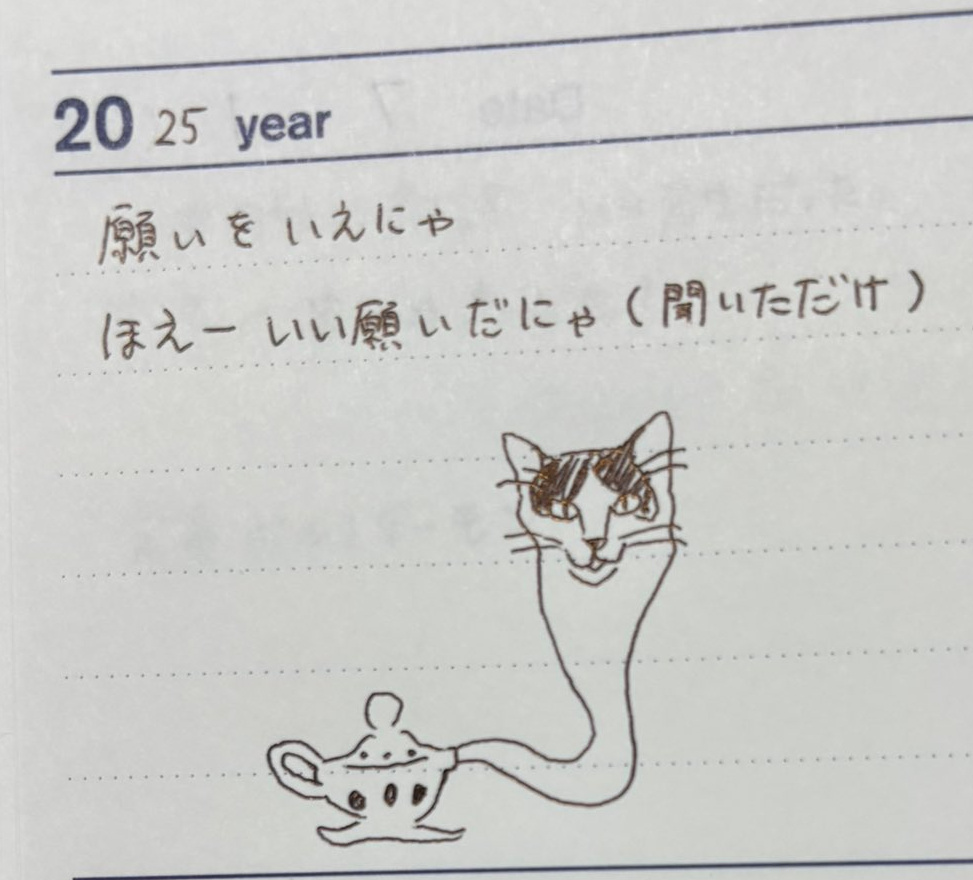 20 25 year
願いをいえにゃ
ほえー いい願いだにゃ(聞いただけ)